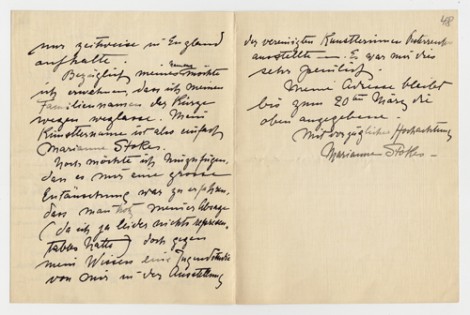 nur zeitweise in England
aufhalte.
Bezüglich meines Namens möchte
ich erwähnen, das ich meinen
Familiennamen der Kürze
wegen weglasse. Mein
Künstlername ist also einfach
Marianne Stokes.
Noch möchte ich hinzufügen,
dass es mir eine grosse
Entäuschung war zu erfahren,
dass man trotz meiner Absage
(da ich ja leider nichts represen-
tables hatte) doch gegen
mein Wissen eine Jugendstudie
von mir in der Ausstellung
48
der vereinigten Künstlerinnen Österreichs
ausstellte —. Es war mir dies
sehr peinlich.
Meine Adresse bleibt
bis zum 20ten März die
oben angegebene.
Mit vorzüglicher Hochachtung
Marianne Stokes –